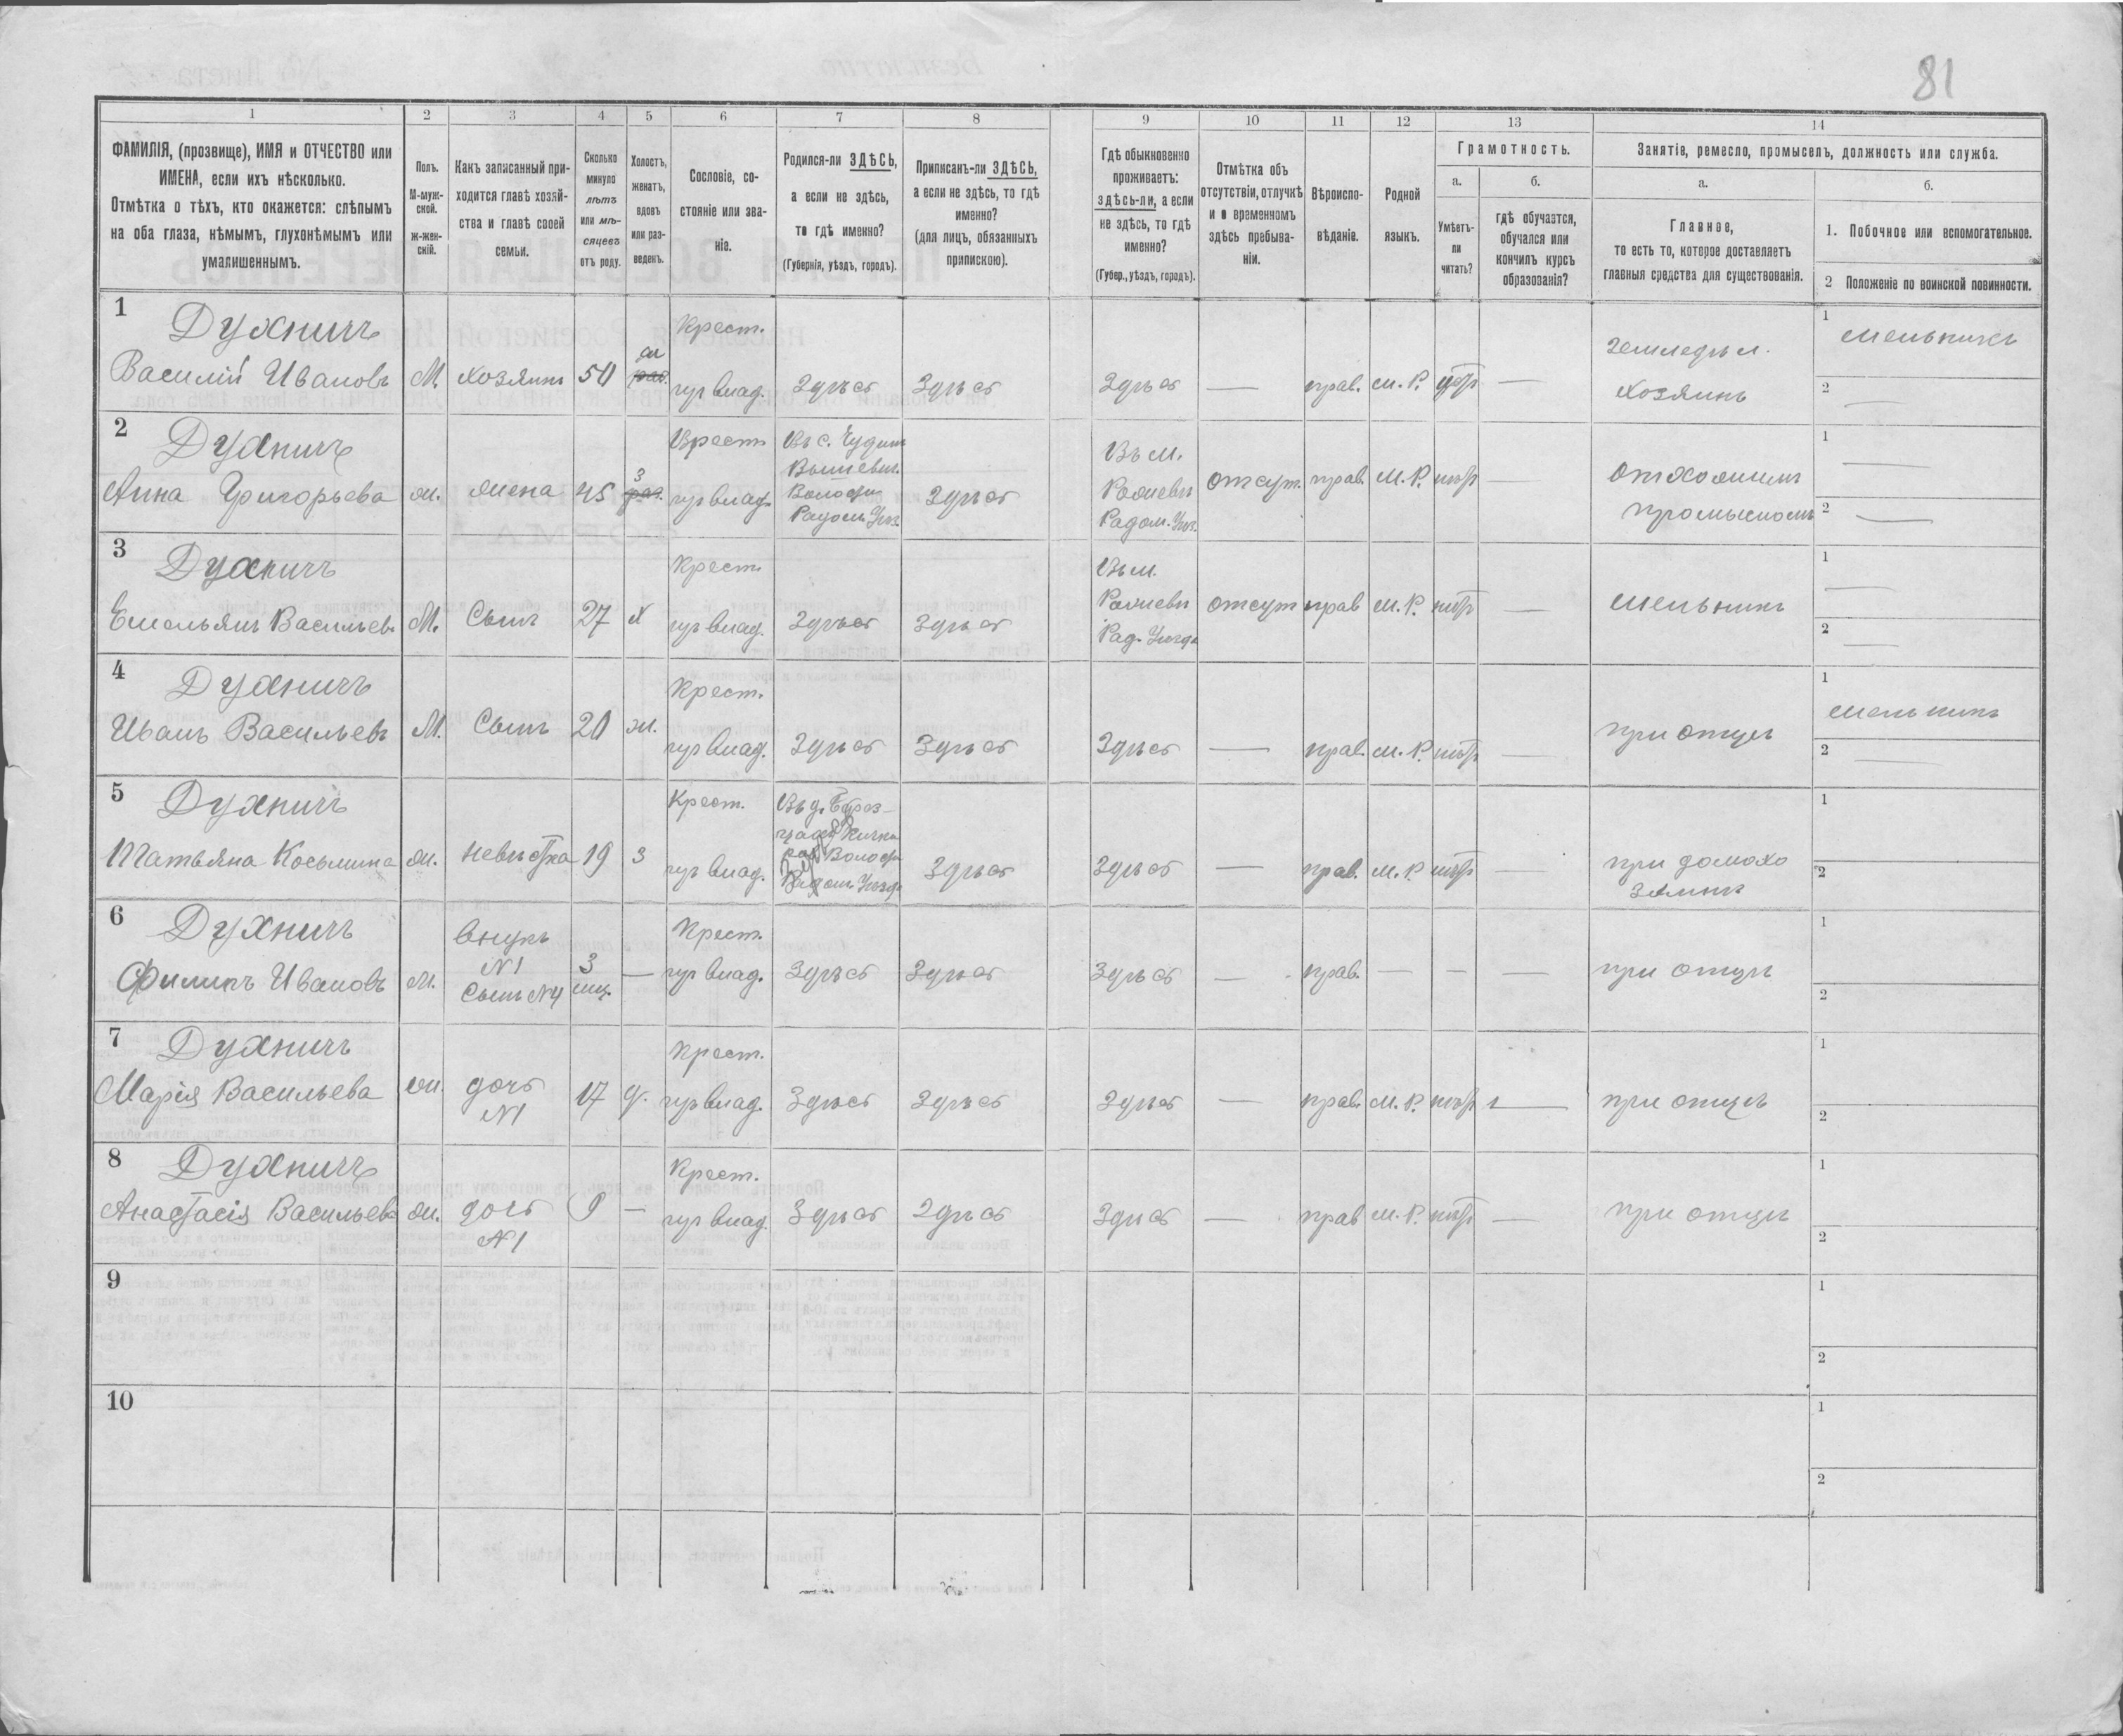 81
1 2 3 4 5 6 7 8 9 10 11 12 13 14
ФАМИЛІЯ, (прозвище), ИМЯ и ОТЧЕСТВО или
ИМЕНА, если ихъ нѣсколько.
Отмѣтка о тѣхъ, кто окажется: слѣпымъ
на оба глаза, нѣмымъ, глухонѣмымъ или
умалишеннымъ.
Полъ.
М-муж-
ской.
ж-жен-
скій.
Какъ записанный при-
ходится главѣ хозяй-
ства и главѣ своей
семьи.
Сколько
минуло
лѣтъ
или мѣ-
сяцевъ
отъ роду.
Холостъ,
женатъ,
вдовъ
или раз-
веденъ.
Сословіе, со-
стояніе или зва-
ніе.
Родился-ли ЗДѢСЬ,
а если не здѣсь,
то гдѣ именно?
(Губернія, уѣздъ, городъ).
Приписанъ-ли ЗДѢСЬ,
а если не здѣсь, то гдѣ
именно?
(для лицъ, обязанныхъ
припискою).
Гдѣ обыкновенно
проживаетъ:
здѣсь-ли, а если
не здѣсь, то гдѣ
именно?
(Губер., уѣздъ, городъ).
Отмѣтка объ
отсутствіи, отлучкѣ
и о временномъ
здѣсь пребыва-
ніи.
Вѣроиспо-
вѣданіе.
Родной
языкъ.
Грамотность.
а.
Умѣетъ-
ли
читать?
б.
гдѣ обучается,
обучался или
кончилъ курсъ
образованія?
Занятіе, ремесло, промыселъ, должность или служба.
а.
Главное,
то есть то, которое доставляетъ
главныя средства для существованія.
б.
1. Побочное или вспомогательное.
2 Положеніе по воинской повинности.
1
Духничъ
Василій Ивановъ
М.
хозяинъ
50
ж
Крест.
гос влад.
Здѣсь
Здѣсь
Здѣсь
—
прав.
м. Р.
нѣт
—
земледѣл.
хозяинъ
1 мельникъ
2 —
2
Духничъ
Анна Григорьева
ж.
жена
45
з
Крест
Въ с.
Волости
Радом. Уѣз.
Здѣсь
Въ м.
Радом. Уѣз.
отсут.
прав.
М. Р.
нѣт
отхожимъ
промысломъ
1 —
2 —
3
Духничъ
Емельянъ Васильев
М.
Сынъ
27
х
Крест.
Здѣсь
Здѣсь
Въ м.
Рад. Уѣзда
отсут
прав
М. Р.
нѣт
—
мельникъ
1 —
2 —
4
Духничъ
Иванъ Васильевъ
М.
Сынъ
20
ж.
Крест.
Здѣсь
Здѣсь
Здѣсь
—
прав.
м. Р.
нѣт
—
при отцѣ
1 мельникъ
2 —
5
Духничъ
Татьяна Косьмина
ж.
невѣстка
19
з
Крест.
Въ д.
Волости
Радом. Уѣзда
Здѣсь
Здѣсь
—
прав.
м. Р.
нѣт
—
при домохо
зяинѣ
1
2
6
Духничъ
Филипъ Ивановъ
м.
внукъ
N1
Сынъ N4
3
мц.
—
Крест.
Здѣсь
Здѣсь
Здѣсь
—
прав.
—
—
—
при отцѣ
1
2
7
Духничъ
Марія Васильева
ж.
дочь
N1
17
д.
Крест.
Здѣсь
Здѣсь
Здѣсь
—
прав.
М. Р.
нѣт
—
при отцѣ
1
2
8
Духничъ
Анастасія Васильева
ж.
дочь
N1
9
—
Крест.
Здѣсь
Здѣсь
Здѣсь
—
прав
м. Р.
нѣт
—
при отцѣ
1
2
9
1
2
10
1
2